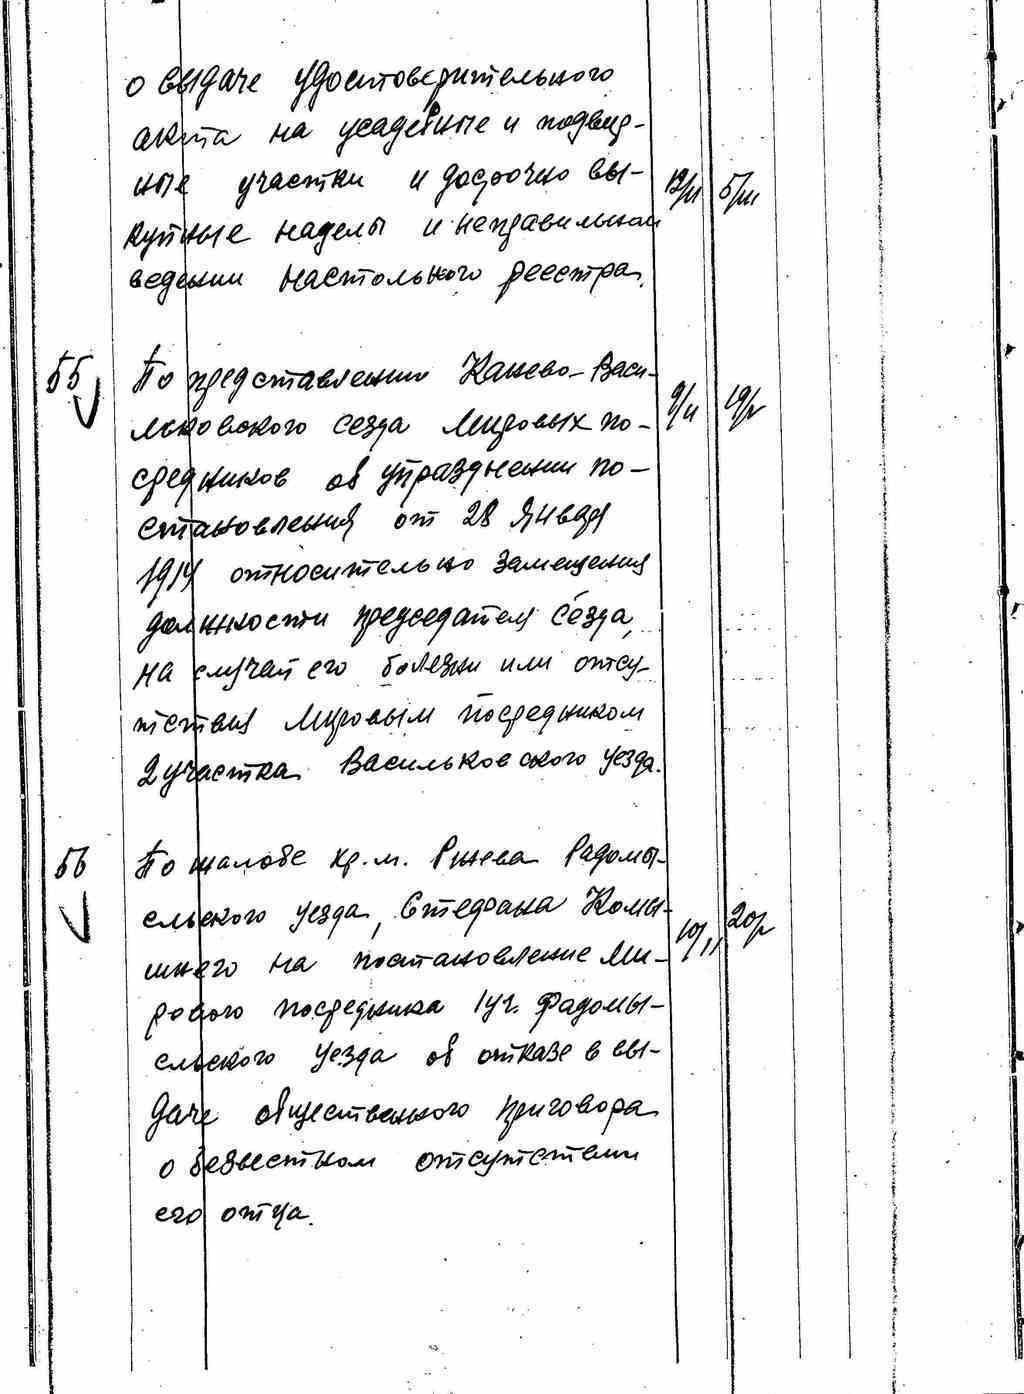 о выдаче удостоверительного
акта на усадебные и подвор-
ные участки и досрочно вы-
купные наделы и неправильном
ведении настольного реестра.
12/II 5/III
55 По представлению Канево-Васи-
льковского сезда Мировых по-
средников об упразднении по-
становления от 28 Января
1914 относительно замещения
должности председателя сезда,
на случай его болезни или отсу-
тствия Мировым посредником
2 участка Васильковского уезда.
9/II
56 По жалобе кр. м. Ржева Радомы-
сльского уезда, Стефана Комы-
шнего на постановление Ми-
рового посредника 1 уч. Радомы-
сльского уезда об отказе в вы-
даче общественного приговора
о безвестном отсутствии
его отца.
10/II